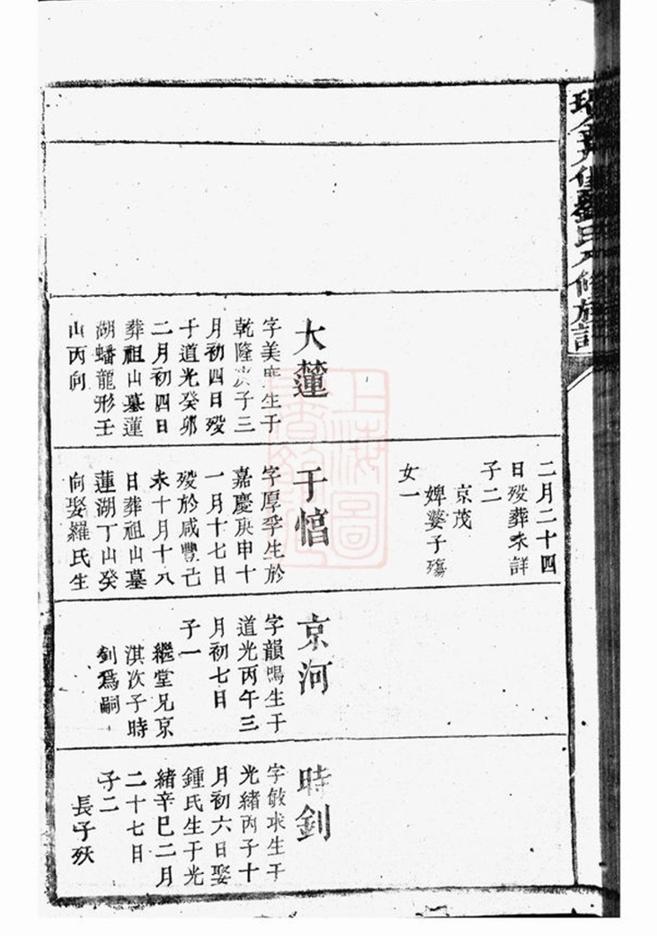 劉氏八修族譜
大蓮
字美生于
乾隆庚子三
月初四日歿
于道光癸卯
二月初四日
葬祖山墓蓮
湖蟠龍形壬
山丙向
二月二十四
日歿葬未詳
子二
京茂
婢婆子殤
女一
于悎
字厚孚生於
嘉慶庚申十
一月十七日
歿於咸豐己
未十月十八
日葬祖山墓
蓮湖丁山癸
向娶羅氏生
京河
字韻鳴生于
道光丙午三
月初七日
子一
繼堂兄京
淇次子時
釗爲嗣
時釗
字敏求生于
光緒丙子十
月初六日娶
鍾氏生于光
緒辛巳二月
二十七日
子二
長子殀
上海圖